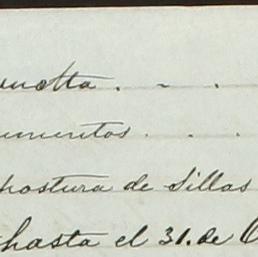 umentos . . .
postura de Sillas
hasta el 31. de